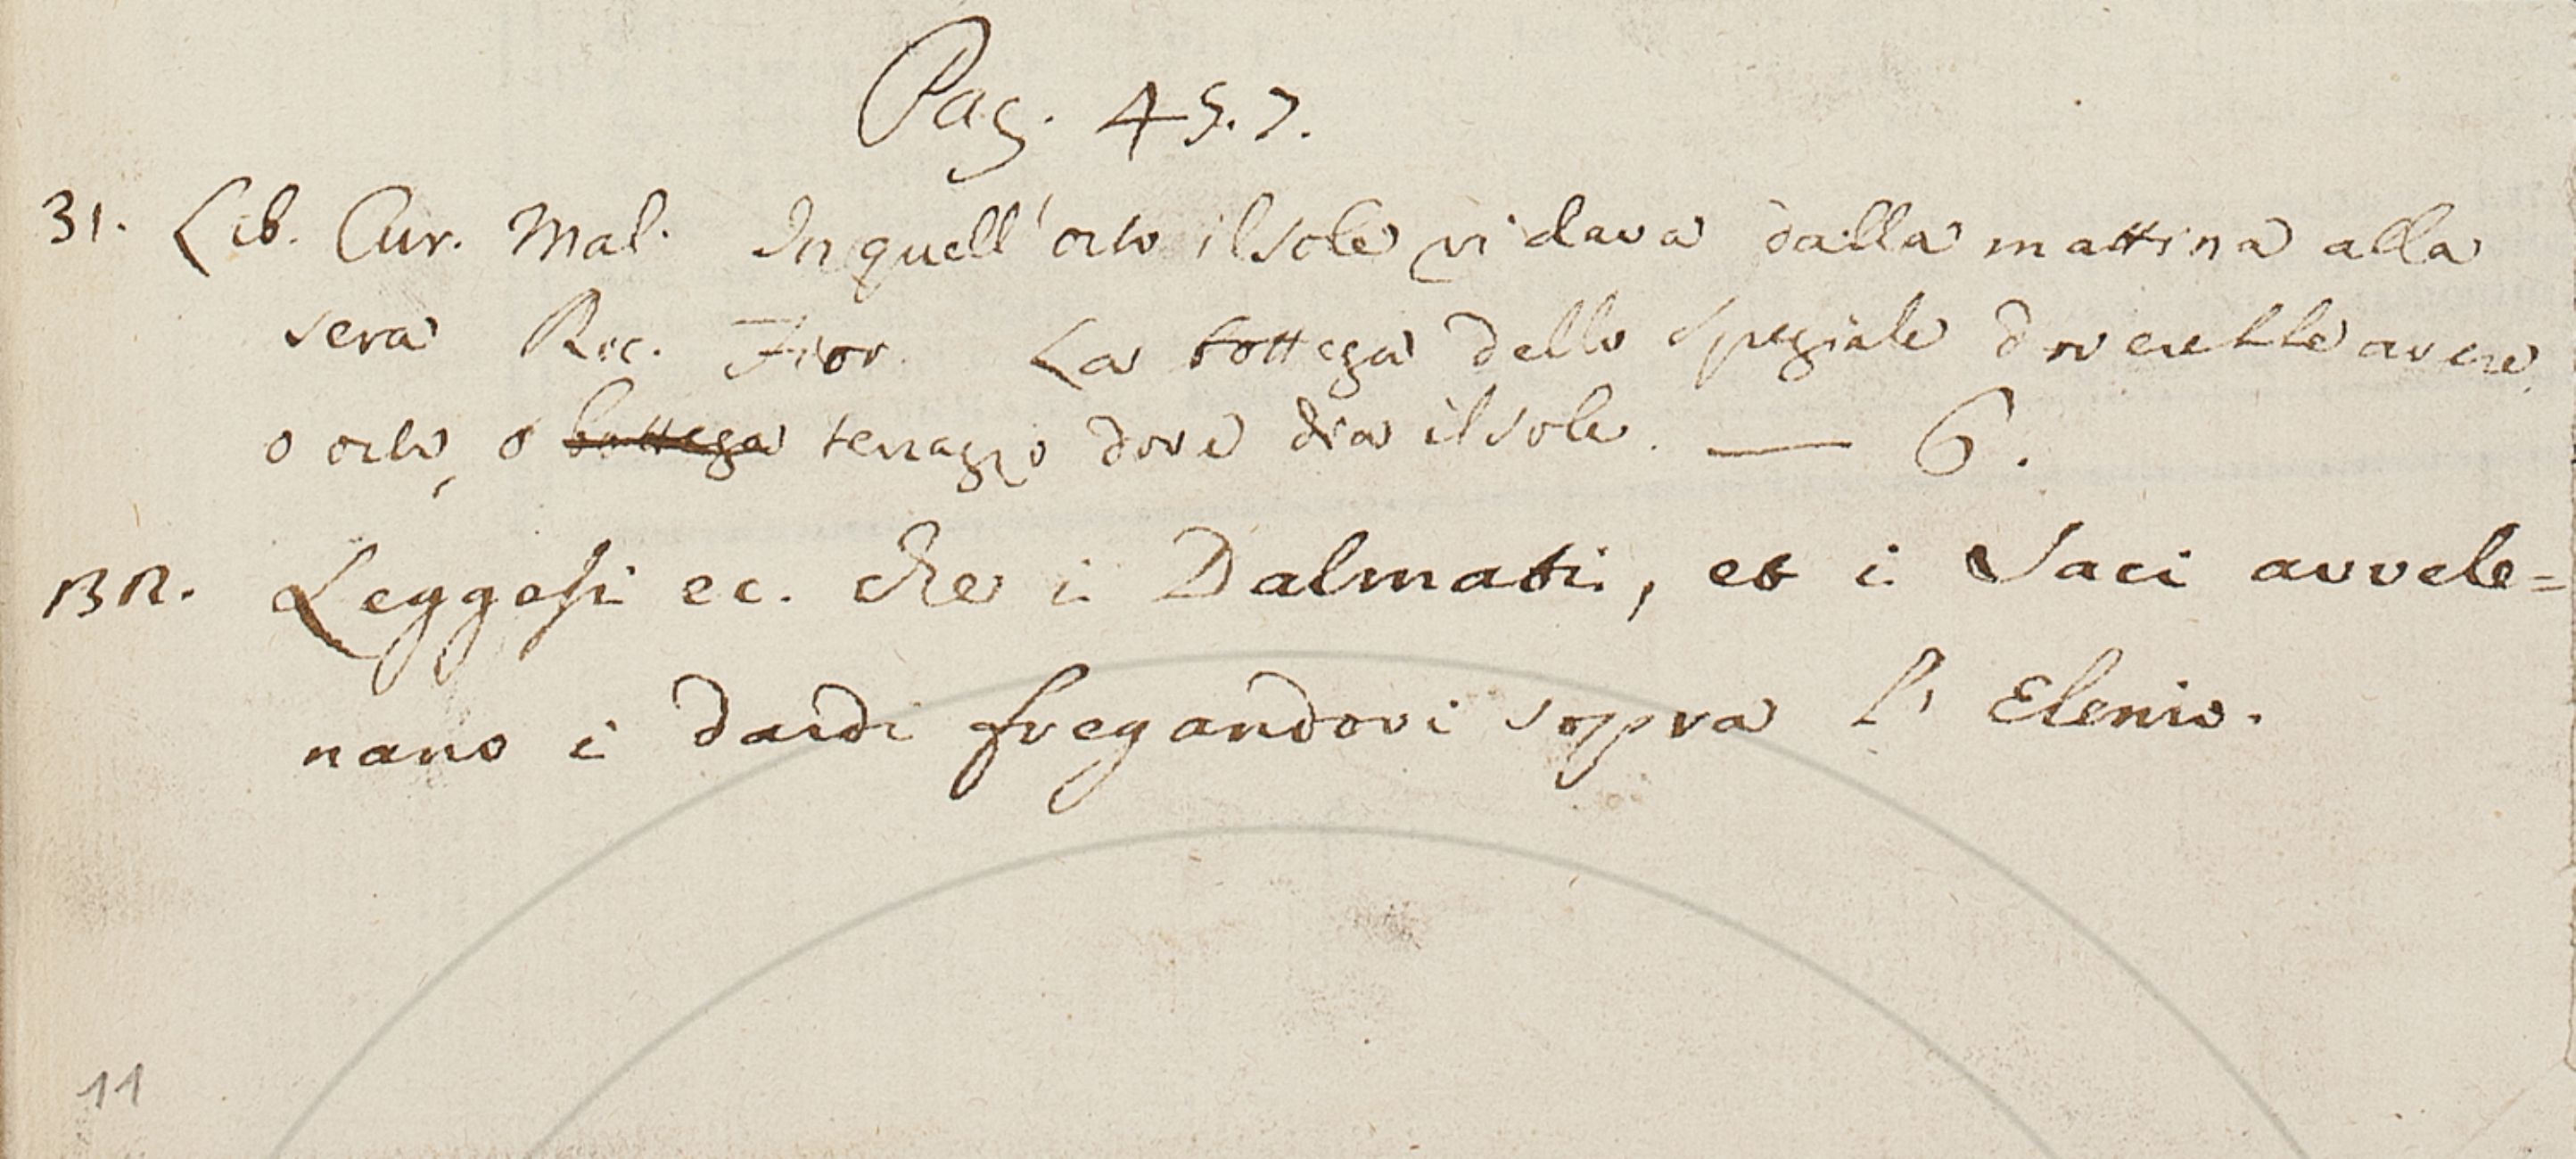 Pag. 457.
31. Lib. Cur. Mal. In quell' orto il sole vi dava dalla mattina alla
sera Ric. Fior. La bottega dello Speziale dovrebbe avere
o orto, o bottega terrazzo dove dia il sole. — 6.
BR. Leggesi ec. che i Dalmati, et i Saci avvele=
nano i dardi fregandovi sopra l' Elenio.
11